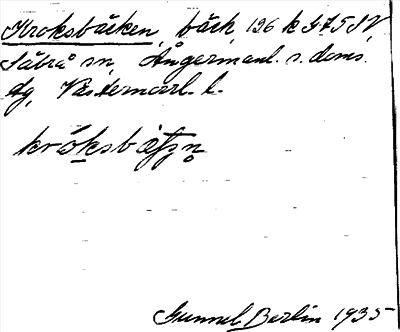 Kroksbäcken, bäck, 126 k S.4.5 SV,
Säbrå sn, Ångermanl. s. doms.
tg, Västernorrl. l.
króksbätʃʒn̥
Gunnel Berlin 1935